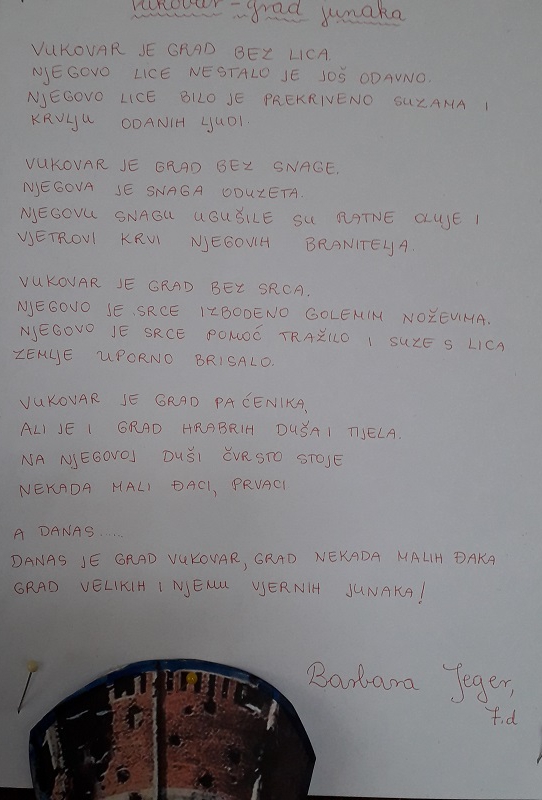 Vukovar - grad junaka
VUKOVAR JE GRAD BEZ LICA.
NJEGOVO LICE NESTALO JE JOŠ ODAVNO.
NJEGOVO LICE BILO JE PREKRIVENO SUZAMA I
KRVLJU ODANIH LJUDI.
VUKOVAR JE GRAD BEZ SNAGE.
NJEGOVA JE SNAGA ODUZETA.
NJEGOVU SNAGU UGUŠILE SU RATNE OLUJE I
VJETROVI KRVI NJEGOVIH BRANITELJA.
VUKOVAR JE GRAD BEZ SRCA.
NJEGOVO JE SRCE IZBODENO GOLEMIM NOŽEVIMA.
NJEGOVO JE SRCE POMOĆ TRAŽILO I SUZE S LICA
ZEMLJE UPORNO BRISALO.
VUKOVAR JE GRAD PAĆENIKA,
ALI JE I GRAD HRABRIH DUŠA I TIJELA.
NA NJEGOVOJ DUŠI ČVRSTO STOJE
NEKADA MALI ĐACI, PRVACI
A DANAS.....
DANAS JE GRAD VUKOVAR, GRAD NEKADA MALIH ĐAKA
GRAD VELIKIH I NJEMU VJERNIH JUNAKA!
Barbara Jeger,
7.d